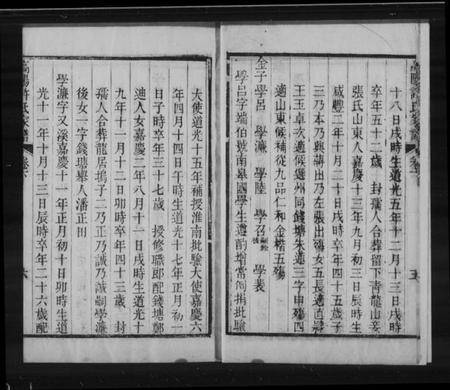 十八日戌時生道光五年十二月十三日戌時
卒年五十二歲 封孺人合葬留下青龍山妾
張氏山東人嘉慶十三年九月初三日辰時生
咸豐二年十月二十日戌時卒年四十五歲子
三乃本乃興 出乃左張出殤女五長適直隸
王玉卓次適候選州同錢塘朱蓮三字申殤四
適山東候補從九品仁和金楷五殤
金子學呂 學濂 學陸 學召 學裴
學呂字端伯號南皋國學生遵酌增常例捐批驗
大使道光十五年補授淮南批驗大使嘉慶六
年四月十四日午時生道光十七年正月初六
日子時卒年三十七歲 授修職郎配錢塘鄭
迪人女嘉慶二年八月十一日戌時生道光十
九年十一月十二日卯時卒年四十三歲 封
孺人合葬龍居塢子二乃正乃諴乃諴嗣學濂
後女一字錢塘舉人潘正田
學濂字又溪嘉慶十一年正月初十日卯時生道
光十一年十月十三日辰時卒年二十六歲配
高陽許氏家譜 卷六